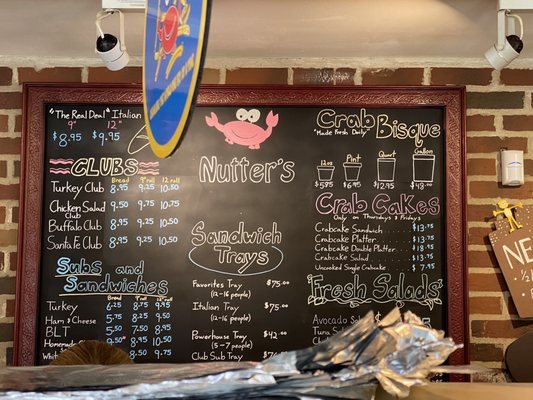 "The Real Deal" Italian
9" 12"
$8.95 $9.95
CLUBS
Bread 9"roll 12"
Turkey Club 8.95 9.25 10.50
Chicken Salad Club 9.50 9.75 10.75
Buffalo Club 8.95 9.25 10.50
Santa Fe Club 8.95 9.25 10.50
Subs and Sandwiches
Bread 9"roll 12"
Turkey 6.25 8.75 9.45
Ham & Cheese 5.75 8.25
BLT 5.50 7.50 8.95
Homemade
Nutter's
Sandwich Trays
Favorites Tray $75.00
(12-16 people)
Italian Tray $75.00
(12-16 people)
Powerhouse Tray $42.00
(5-7 people)
Club Sub Tray
Crab Bisque
"Made Fresh Daily"
12oz Pint Quart Gallon
$5.95 $6.95 $12.95 $43.00
Crab Cakes
Only on Thursdays & Fridays
Crabcake Sandwich $13.75
Crabcake Platter $13.75
Crabcake Double Platter
Crabcake Salad $13.75
Uncooked Single Crabcake $7.95
Fresh Salads
Avocado
Tuna
NE